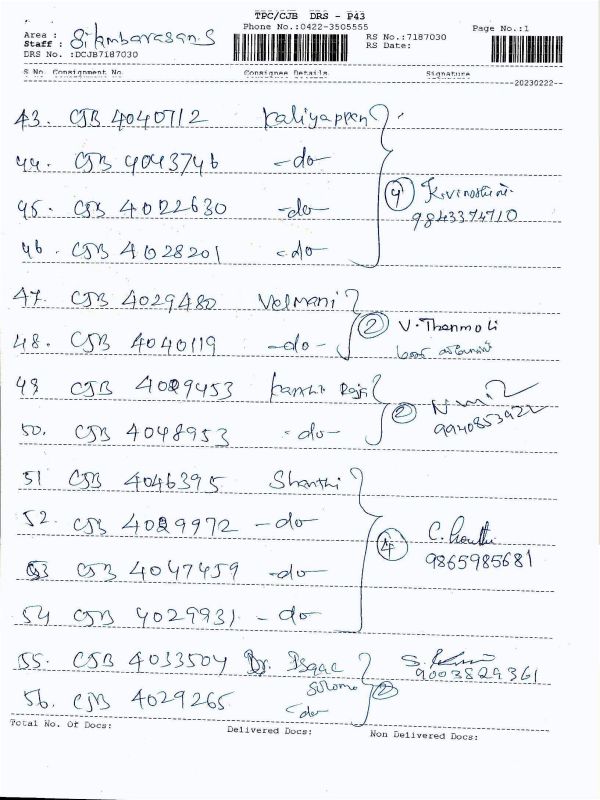 TPC/CJB DRS - P43
Phone No.:0422-3505555
Area :
Staff : Silambarasan.S
DRS No. :DCJB7187030
RS No.:7187030
RS Date:
Page No.:1
S No. Consignment No. Consignee Details Signature
20230222
43. CJB 4040712 Kaliyappen
44. CJB 4043746 -do-
45. CJB 4022630 -do-
46. CJB 4028201 -do-
4
9843374710
47. CJB 4029480 Velmani
48. CJB 4040119 -do-
2 V. Thenmoli
49 CJB 4029453 Raja
50. CJB 4048953 -do-
2
9940853922
51 CJB 4046395 Shanthi
52. CJB 4029972 -do-
53 CJB 4047459 -do-
54 CJB 4029931 -do-
4
9865985681
55. CJB 4033504 Dr. Isaac
Solomo
9003829361
56. CJB 4029265 -do-
2
Total No. Of Docs: Delivered Docs: Non Delivered Docs: